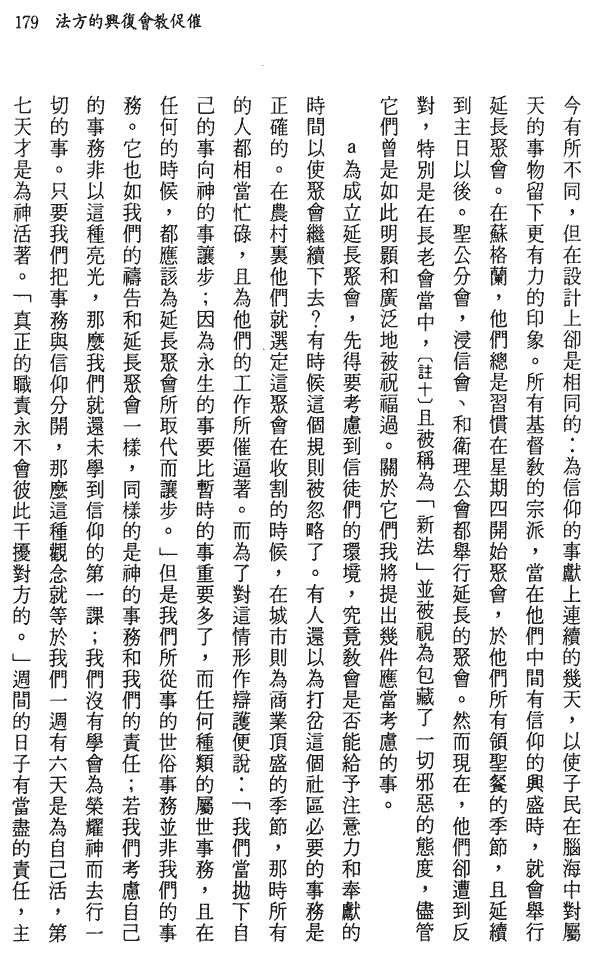 179　法方的興復會教促催
今有所不同，但在設計上卻是相同的：為信仰的事獻上連續的幾天，以使子民在腦海中對屬
天的事物留下更有力的印象。所有基督教的宗派，當在他們中間有信仰的興盛時，就會舉行
延長聚會。在蘇格蘭，他們總是習慣在星期四開始聚會，於他們所有領聖餐的季節，且延續
到主日以後。聖公分會，浸信會、和衛理公會都舉行延長的聚會。然而現在，他們卻遭到反
對，特別是在長老會當中，〔註十〕且被稱為「新法」並被視為包藏了一切邪惡的態度，儘管
它們曾是如此明顯和廣泛地被祝福過。關於它們我將提出幾件應當考慮的事。
a為成立延長聚會，先得要考慮到信徒們的環境，究竟教會是否能給予注意力和奉獻的
時間以使聚會繼續下去？有時候這個規則被忽略了。有人還以為打岔這個社區必要的事務是
正確的。在農村裏他們就選定這聚會在收割的時候，在城市則為商業頂盛的季節，那時所有
的人都相當忙碌，且為他們的工作所催逼著。而為了對這情形作辯護便說：「我們當拋下自
己的事向神的事讓步；因為永生的事要比暫時的事重要多了，而任何種類的屬世事務，且在
任何的時候，都應該為延長聚會所取代而讓步。」但是我們所從事的世俗事務並非我們的事
務。它也如我們的禱告和延長聚會一樣，同樣的是神的事務和我們的責任；若我們考慮自己
的事務非以這種亮光，那麼我們就還未學到信仰的第一課；我們沒有學會為榮耀神而去行一
切的事。只要我們把事務與信仰分開，那麼這種觀念就等於我們一週有六天是為自己活，第
七天才是為神活著。「真正的職責永不會彼此干擾對方的。」週間的日子有當盡的責任，主